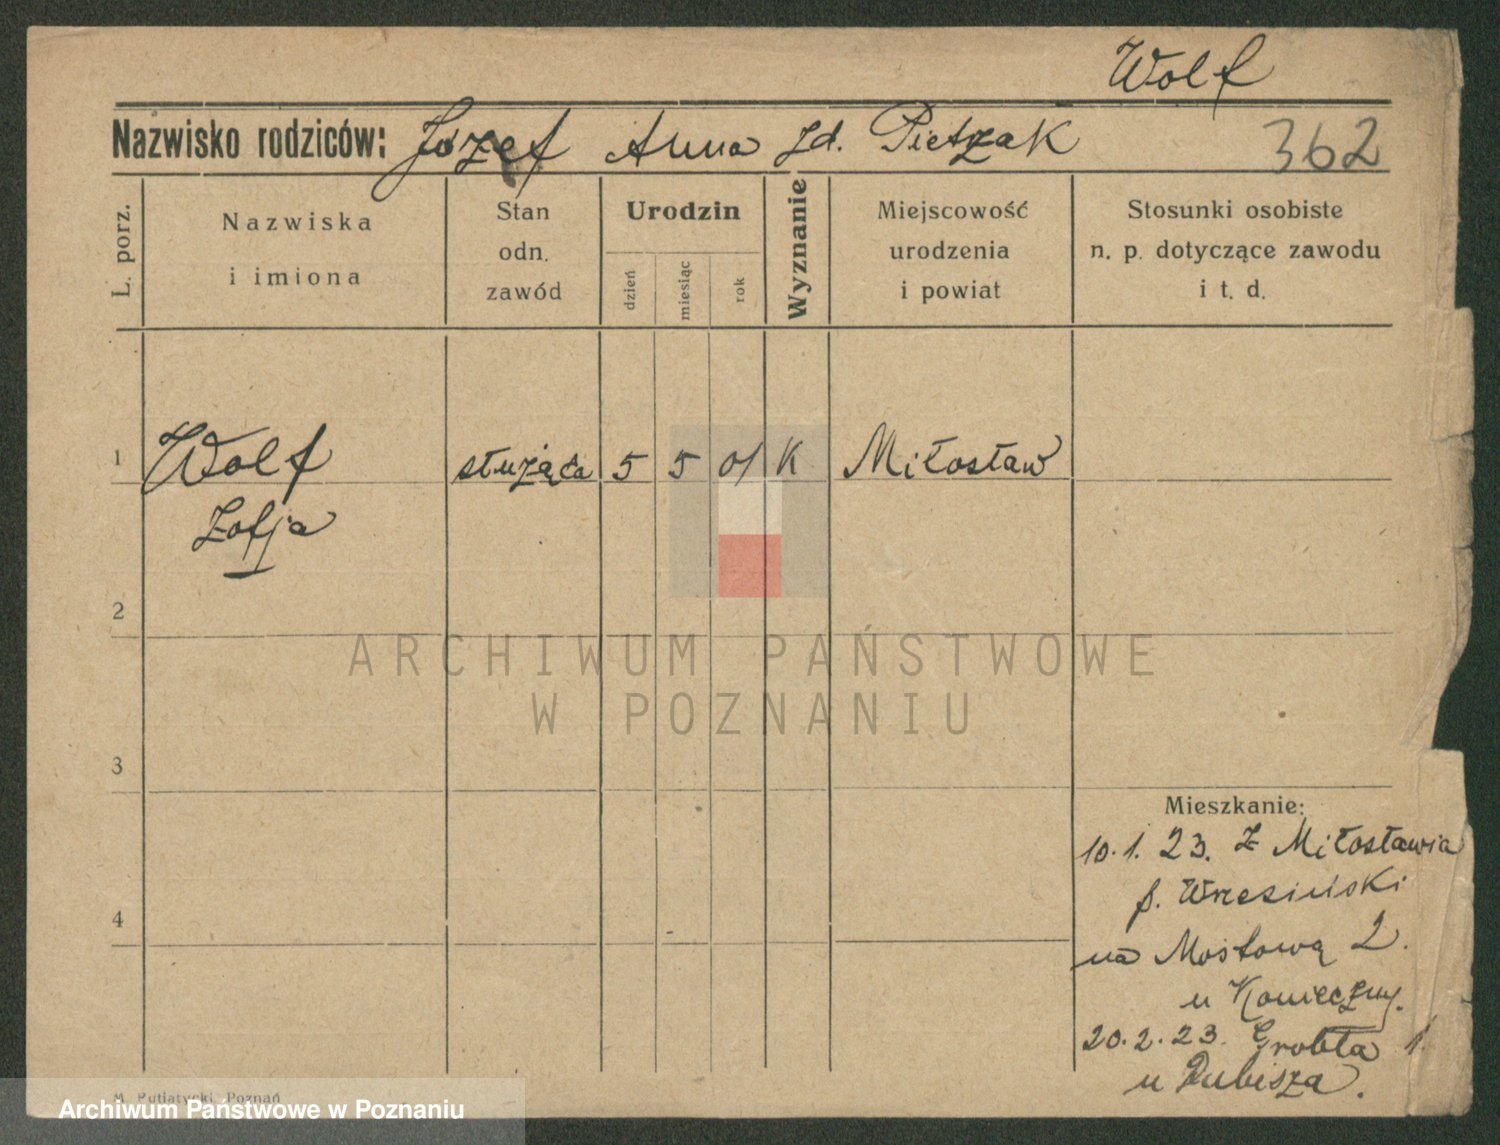 Wolf
Nazwisko rodziców: Józef Anna zd. Pietzak
362
L. porz.
Nazwiska
i imiona
Stan
odn.
zawód
Urodzin
dzień
miesiąc
rok
Wyznanie
Miejscowość
urodzenia
i powiat
Stosunki osobiste
n. p. dotyczące zawodu
i t. d.
1 Wolf służąca 5 5 01 K Miłosław
Zofja
2
ARCHIWUM PAŃSTWOWE
W POZNANIU
3
Mieszkanie:
10.1.23. z Miłosławia
p. Wrzesiński
4
na Mostową 2.
u Konieczny.
20.2.23. Grobla 1.
u Dubisza.
M. Putiatycki Poznań
Archiwum Państwowe w Poznaniu